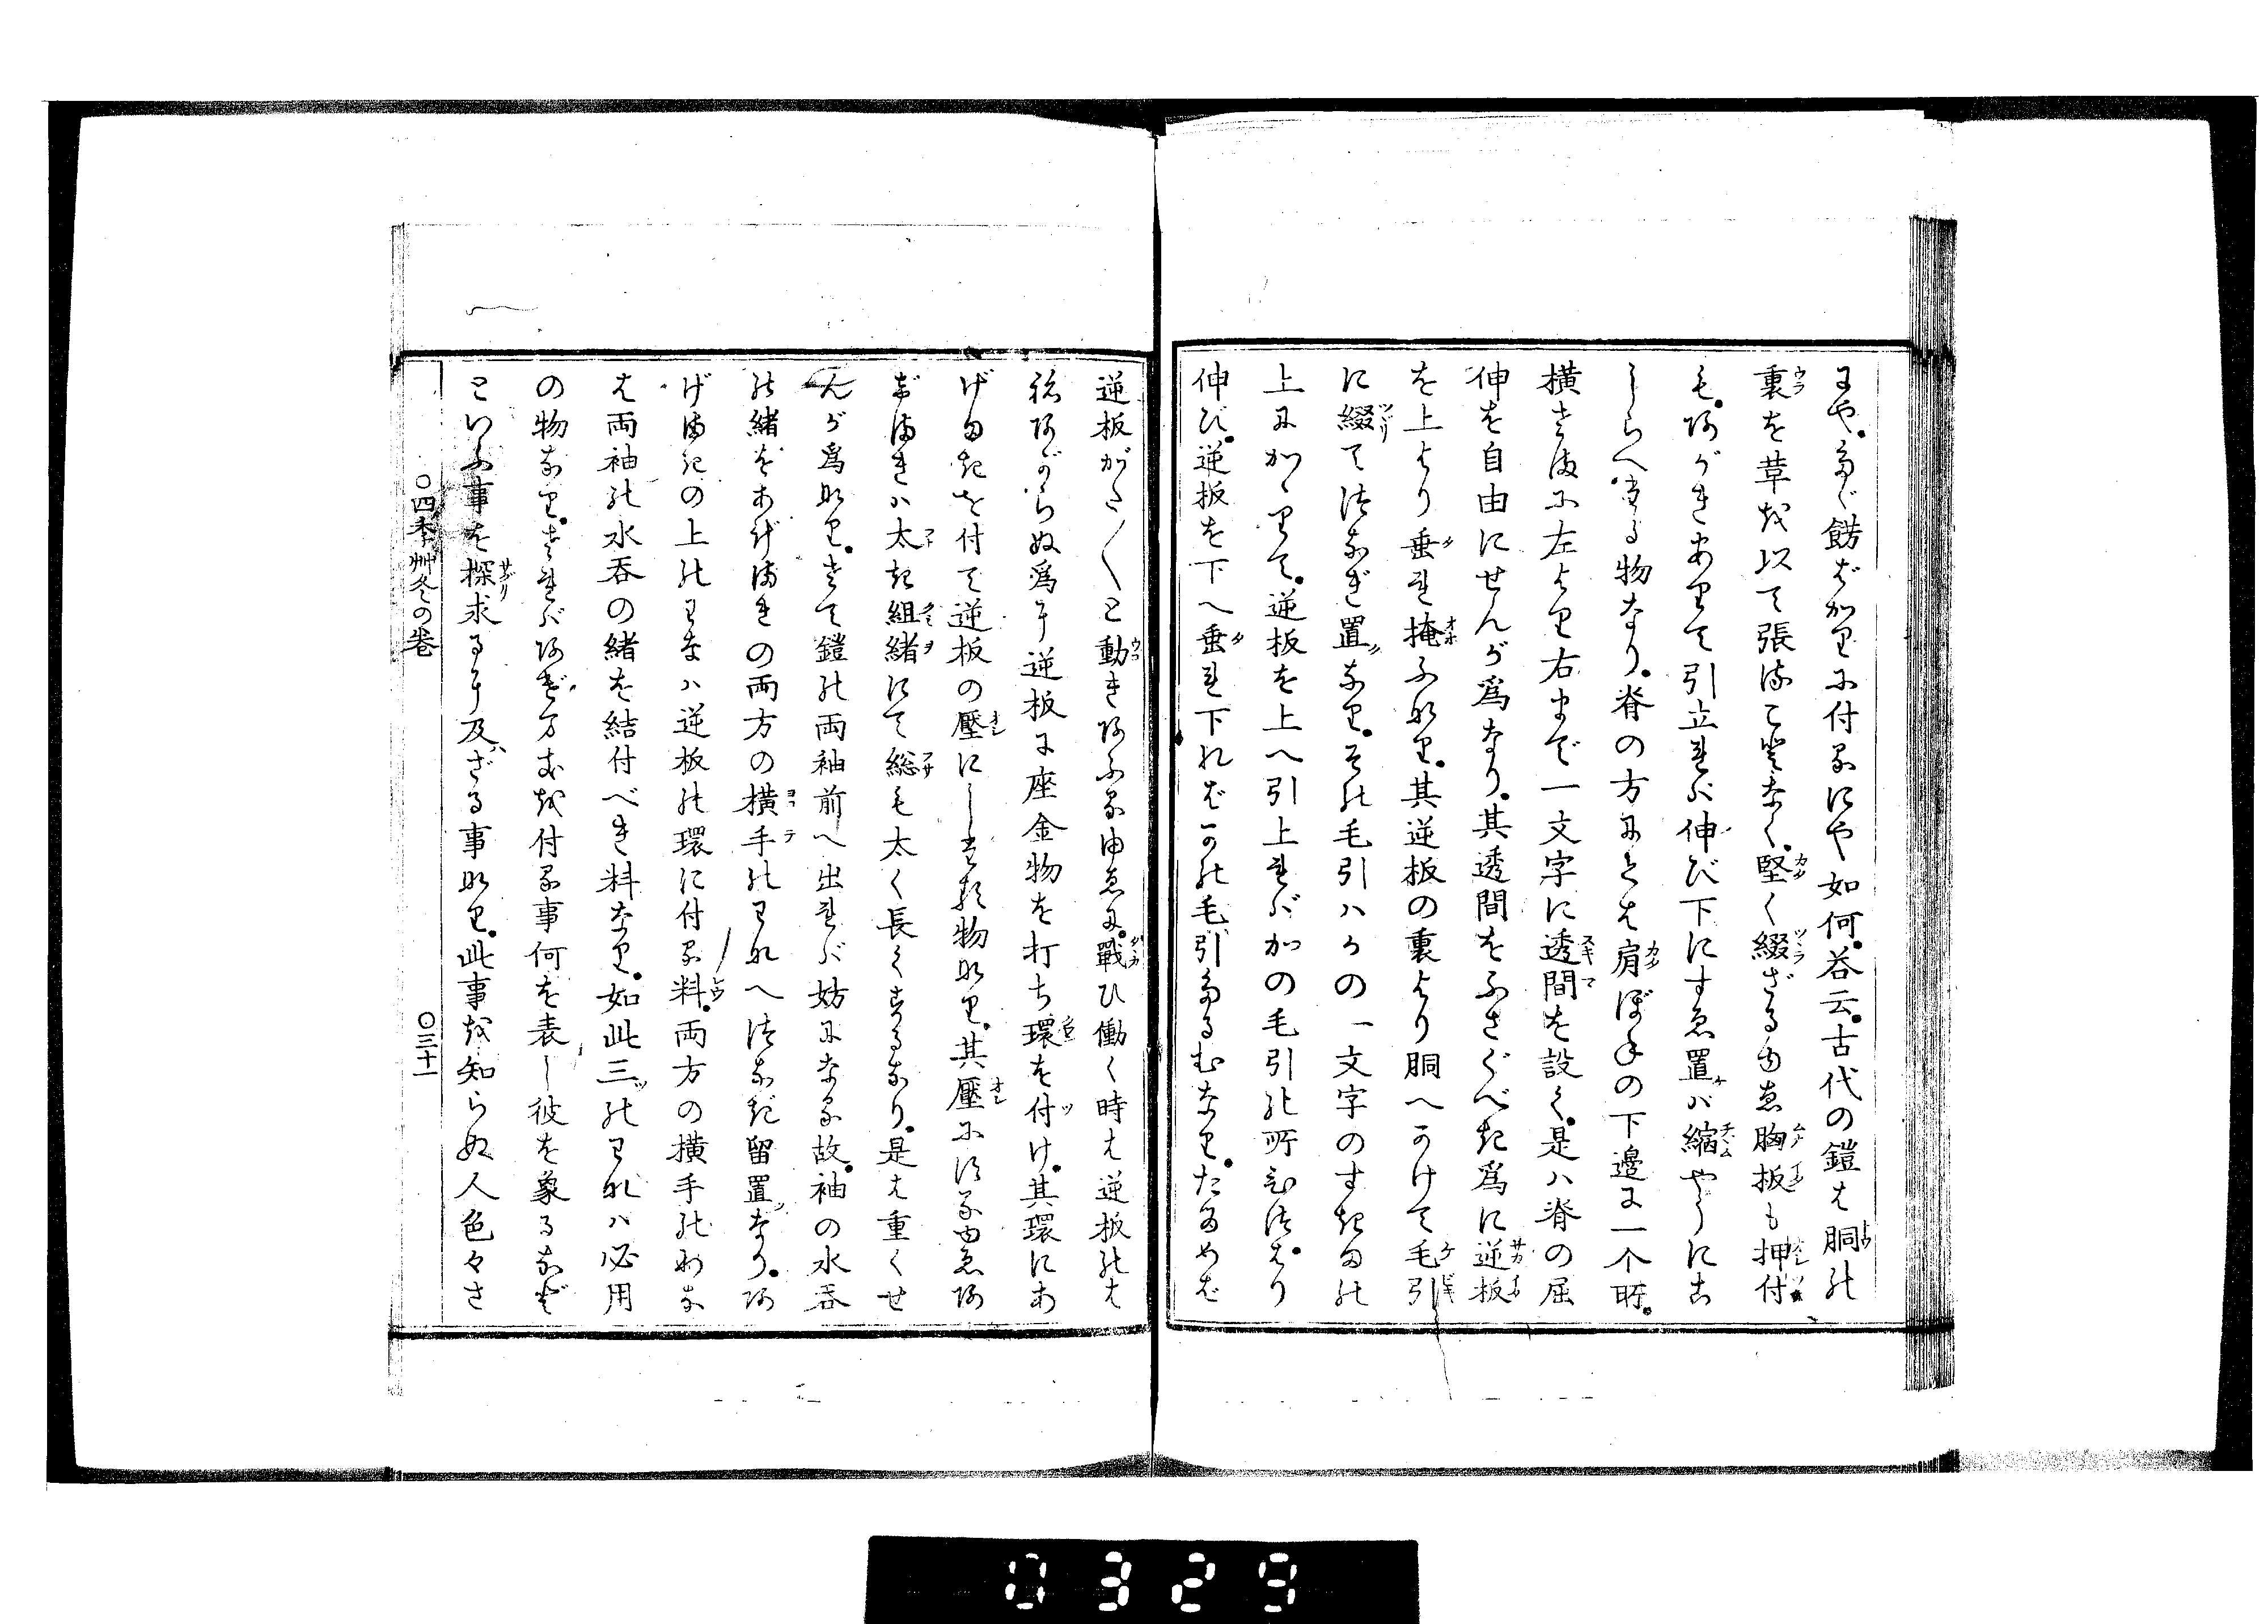 にや。たゞ餝ばかりに付るにや如何。荅云。古代の鎧は胴の
裏を革を以て張ることなく。堅く綴ざるゆゑ胸板も押付
も。あがきありて引立れば伸び下にすゑ置ば縮やうにこ
しらへたる物なり。脊の方にては肩ぼねの下邊に一个所。
横さまに左より右まで一文字に透間を設く。是ハ脊の屈
伸を自由にせんが爲なり。其透間をふさぐべき爲に逆板
を上より垂れ掩ふなり。其逆板の裏より胴へかけて毛引
に綴てつなぎ置なり。その毛引ハかの一文字のすきまの
上にかゝりて。逆板を上へ引上ればかの毛引の所もつまり
伸び。逆板を下へ垂れ下ればかの毛引たるむなり。たるめば
逆板がた〱と動きあふるゆゑに。戰ひ働く時は逆板のは
ねあがらぬ爲に逆板に座金物を打ち環を付け。其環にあ
げまきを付て逆板の壓にしたる物なり。其壓にする由ゑあ
げまきハ太き組緒にて総も太く長くするなり。是は重くせ
んが爲なり。さて鎧の両袖前へ出れば妨になる故。袖の水呑
の緒をあげまきの両方の横手のわなへつなぎ留置なり。あ
げまきの上のわなハ逆板の環に付る料。両方の横手のわな
は両袖の水呑の緒を結付べき料なり。如此三ツのわなハ必用
の物なり。さればあげまきを付る事何を表し彼を象るなど
といふ事を探求るに及ざる事なり。此事を知らぬ人色々さ
〇四季艸冬の巻
〇三十一
0329